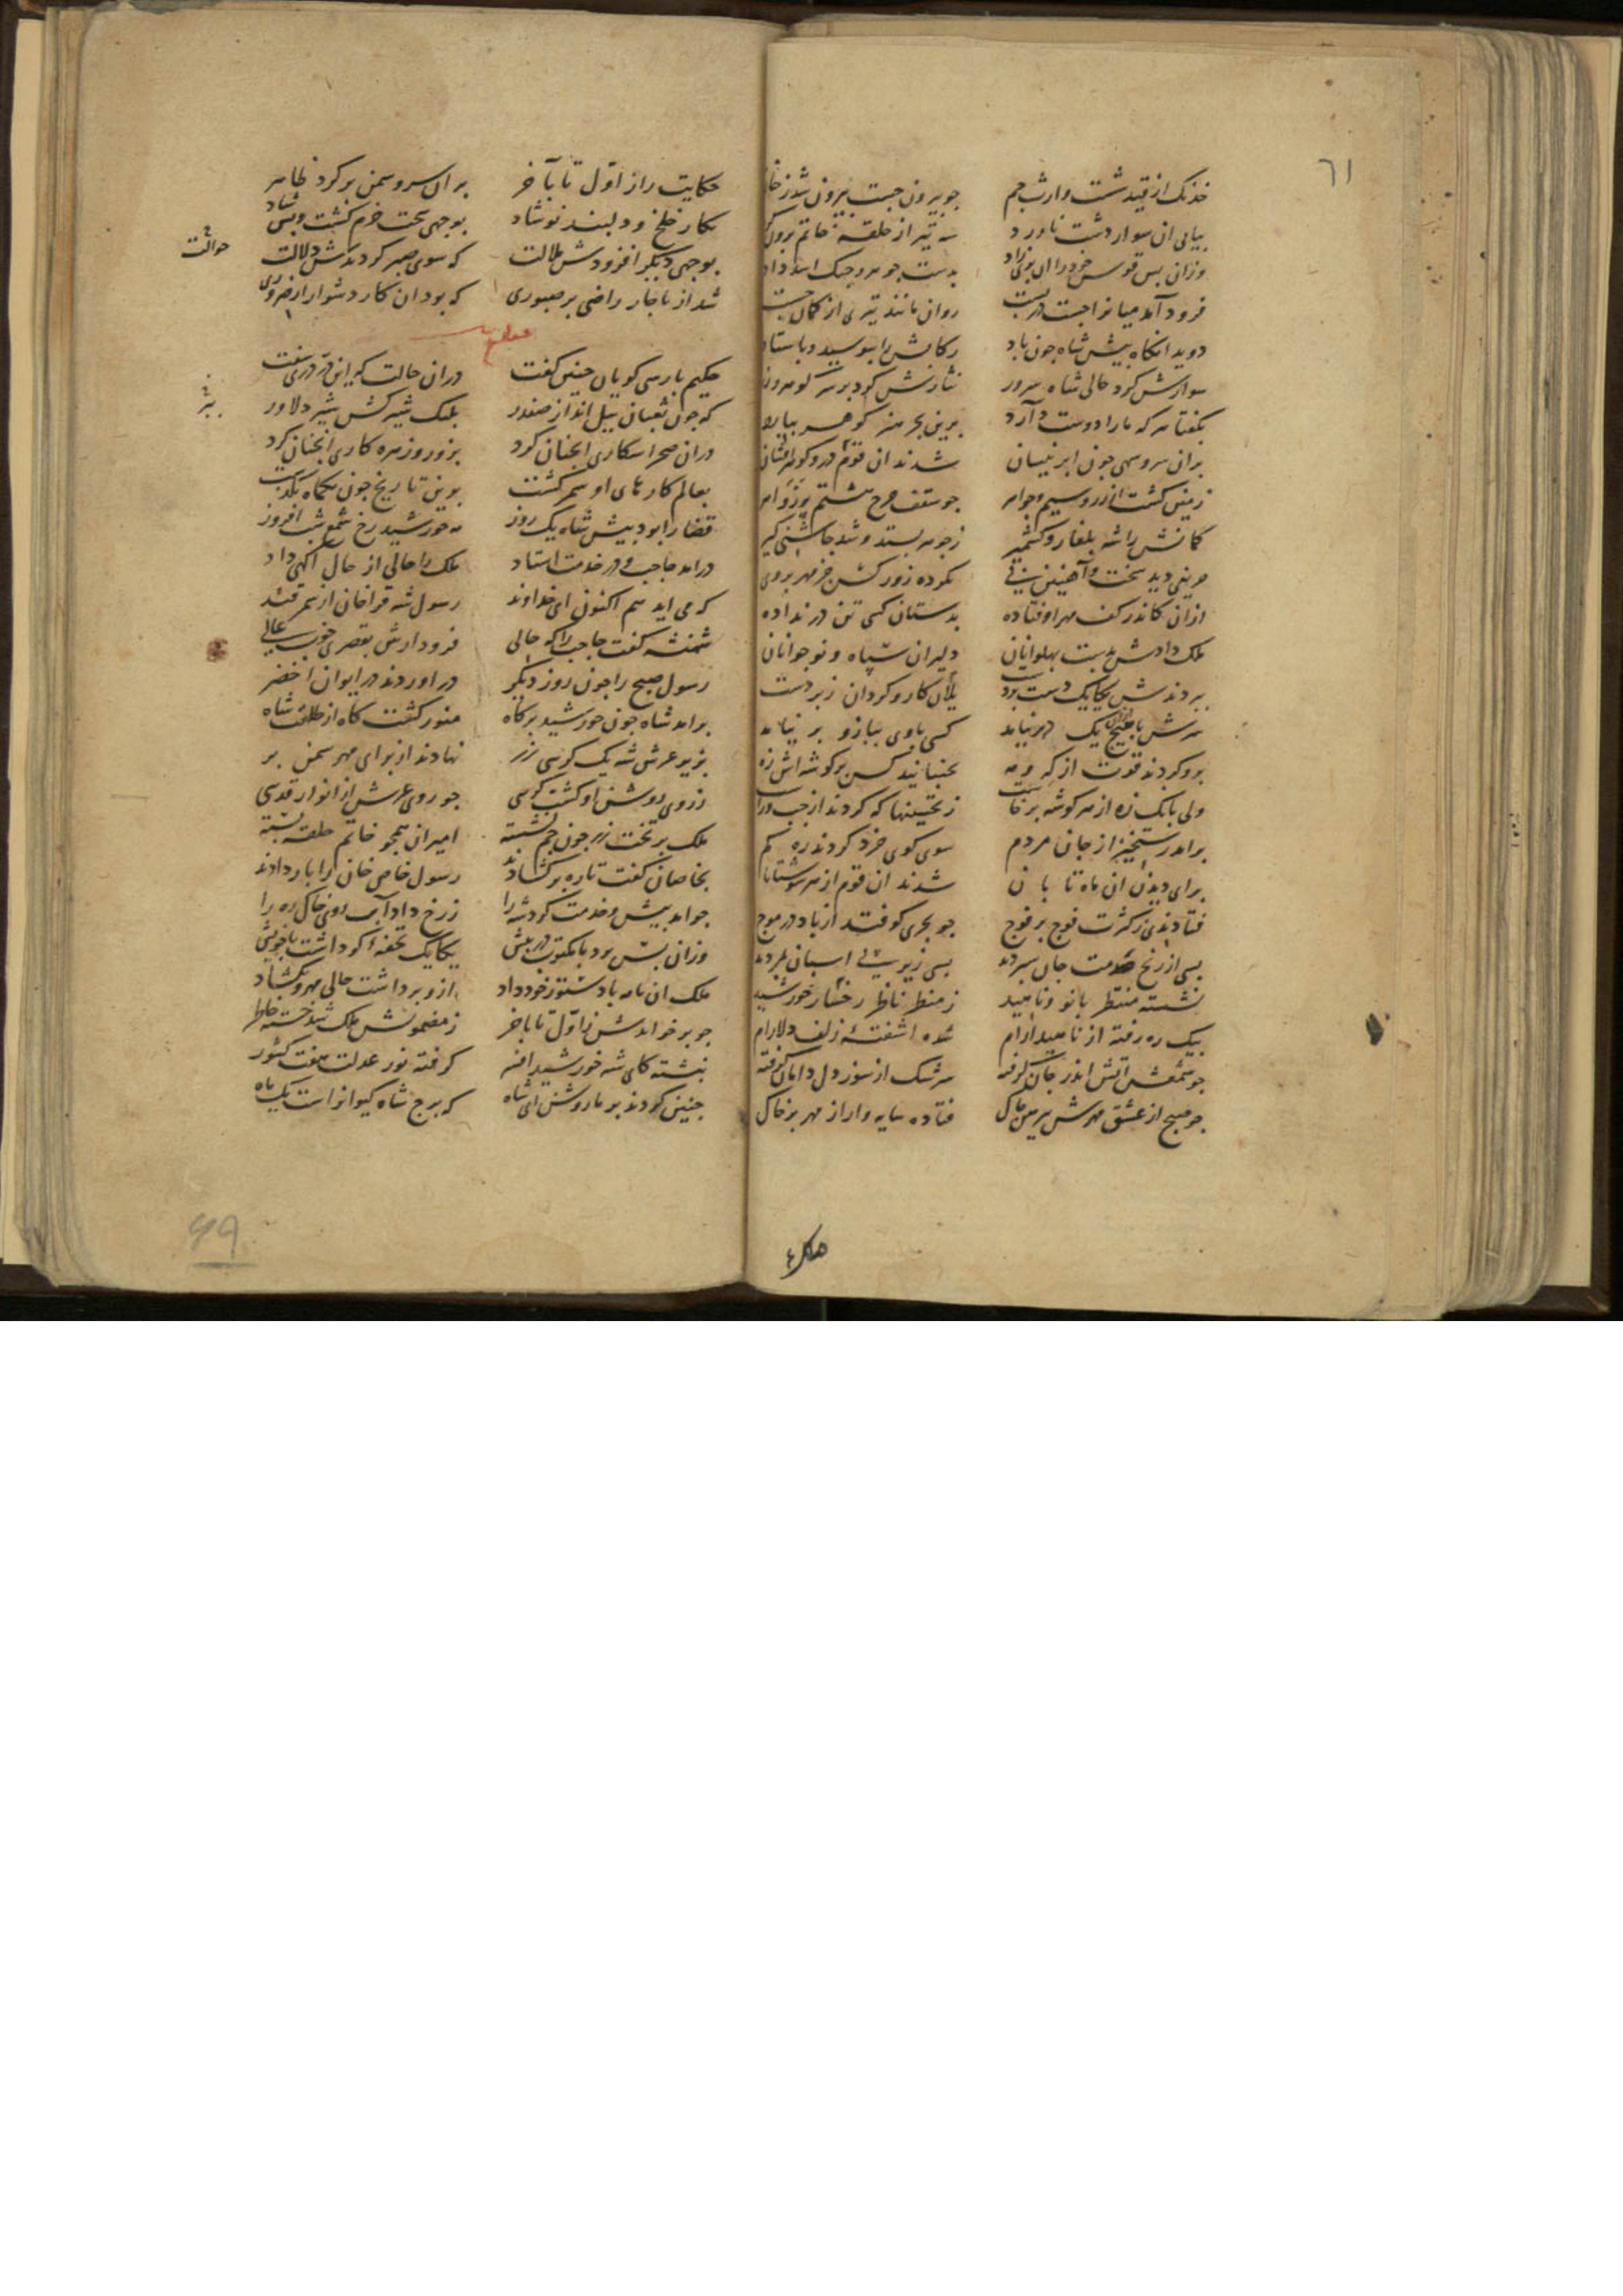 ٦١
خدنک از قید شست وارث جم جو بیرون جست بیرون شد ز
بیالی ان سوار دشت ناورد سه تیر از حلقهٔ خاتم برون
وزان بس قوس خود را ان بدست جوهر و اسد داد
فرود آمد میانرا جست روان مانند تیری از کمان جست
دوید انکاه بیش شاه جون باد رکابش را ببوسید و باستاد
سوارش کرد حالی شاه سرور نثارش کرد بر سر
بکفتا هر که ما را دوست دارد برین بحر هنر کوهر ببارد
بران سرو سهی جون ابر نیسان شدند ان قوم در و کوهر افشان
زمین کشت از زر و سیم و جواهر جو سقف جرخ هشتم
کمانش را شه بلغار و کشمیر ز جوهر بستد و شد جاشنی کیر
دید سخت و آهنین بی نکرده زور کس جز مهر بر وی
ازان کاندر کف مهر اوفتاده بدستان کسی تن در نداده
ملک دادش بدست بهلوانان دلیران سپاه و نوجوانان
ببردندش یکایک دست بر دست یلان کار و کردان زبردست
سرش با هیچ یک در نیامد کسی با وی ببازو بر نیامد
برو کردند قوت از که و مه نجنبانید کس بر کوشه اش زه
ولی بانک زه از هر کوشه برخاست ز تحسینها که کردند از جب و راست
برامد رستخیز از جان مردم سوی کوی خرد کردند ره کم
برای دیدن ان ماه تابان شدند ان قوم از هر سو شتابان
فتادندی ز کثرت فوج بر فوج جو بحری کوفتد از باد در موج
بسی از رنج جان سپردند بسی زیر بی اسبان بمردند
نشسته منتظر بانو و ناهید ز منظر ناظر رخسار خورشید
بیک ره رفته از ناهید ارام شده اشفتهٔ زلف دلارام
جو شمعش اتش اندر جان کرفته سرشک از سوز دل دامان کرفته
جو صبح از عشق مهرش بیرهن جاک فتاده سایه وار از مهر بر خاک
حکایت راز اوّل تا بآخر بر ان سرو سمن بر کرد ظاهر
نکار خلخ و دلبند نوشاد بوجهی سخت خرم کشت و بس شاد
بوجهی دیکر افزودش ملالت که سوی صبر کردندش دلالت
حوالت
شد از ناجار راضی بر صبوری که بود ان کار دشوار از ضروری
حکیم بارسی کویان جنین کفت دران حالت که این در دری سفت
که جون ثعبان بیل انداز صفدر ملک شیرکش شیر دلاور
ببر
دران صحرا شکاری انجنان کرد بزور و زهره کاری انجنان کرد
بعالم کارهای او سمر کشت برین تاریخ جون یکماه بکذشت
قضا را بود بیش شاه یک روز مه خورشید رخ شمع شب افروز
درامد حاجب و در خدمت استاد ملک را حالی از حال اکهی داد
که می اید هم اکنون ای خداوند رسول شه قراخان از سمرقند
شهنشه کفت حاجب را که حالی فرود ارش بقصری خوب عالی
رسول صبح را جون روز دیکر دراوردند در ایوان اخضر
برامد شاه جون خورشید بر کاه منور کشت کاه از طلعت شاه
بزیر عرش شه یک کرسی زر نهادند از برای مهر سمن بر
ز روی روشن او کشت کرسی جو روی عرش از انوار قدسی
ملک بر تخت زر جون جم نشسته امیران همجو خاتم حلقه بسته
بخاصان کفت تا ره بر کشادند رسول خاص خان را بار دادند
جو امد بیش و خدمت کرد شه را ز رخ داد آب روی خاک ره را
وزان بس برد با مکتوب در بیش یکایک تحفهٔ کو داشت با خویش
ملک ان نامه با دستور خود داد ازو برداشت حالی مهر و بکشاد
جو بر خواندش ز اوّل تا باخر ز مضمونش ملک شد خسته خاطر
نبشته کای شه خورشید افسر کرفته نور عدلت هفت کشور
جنین کردند بر ما روشن ای شاه که برج شاه کیوانراست یک ماه
۴۹